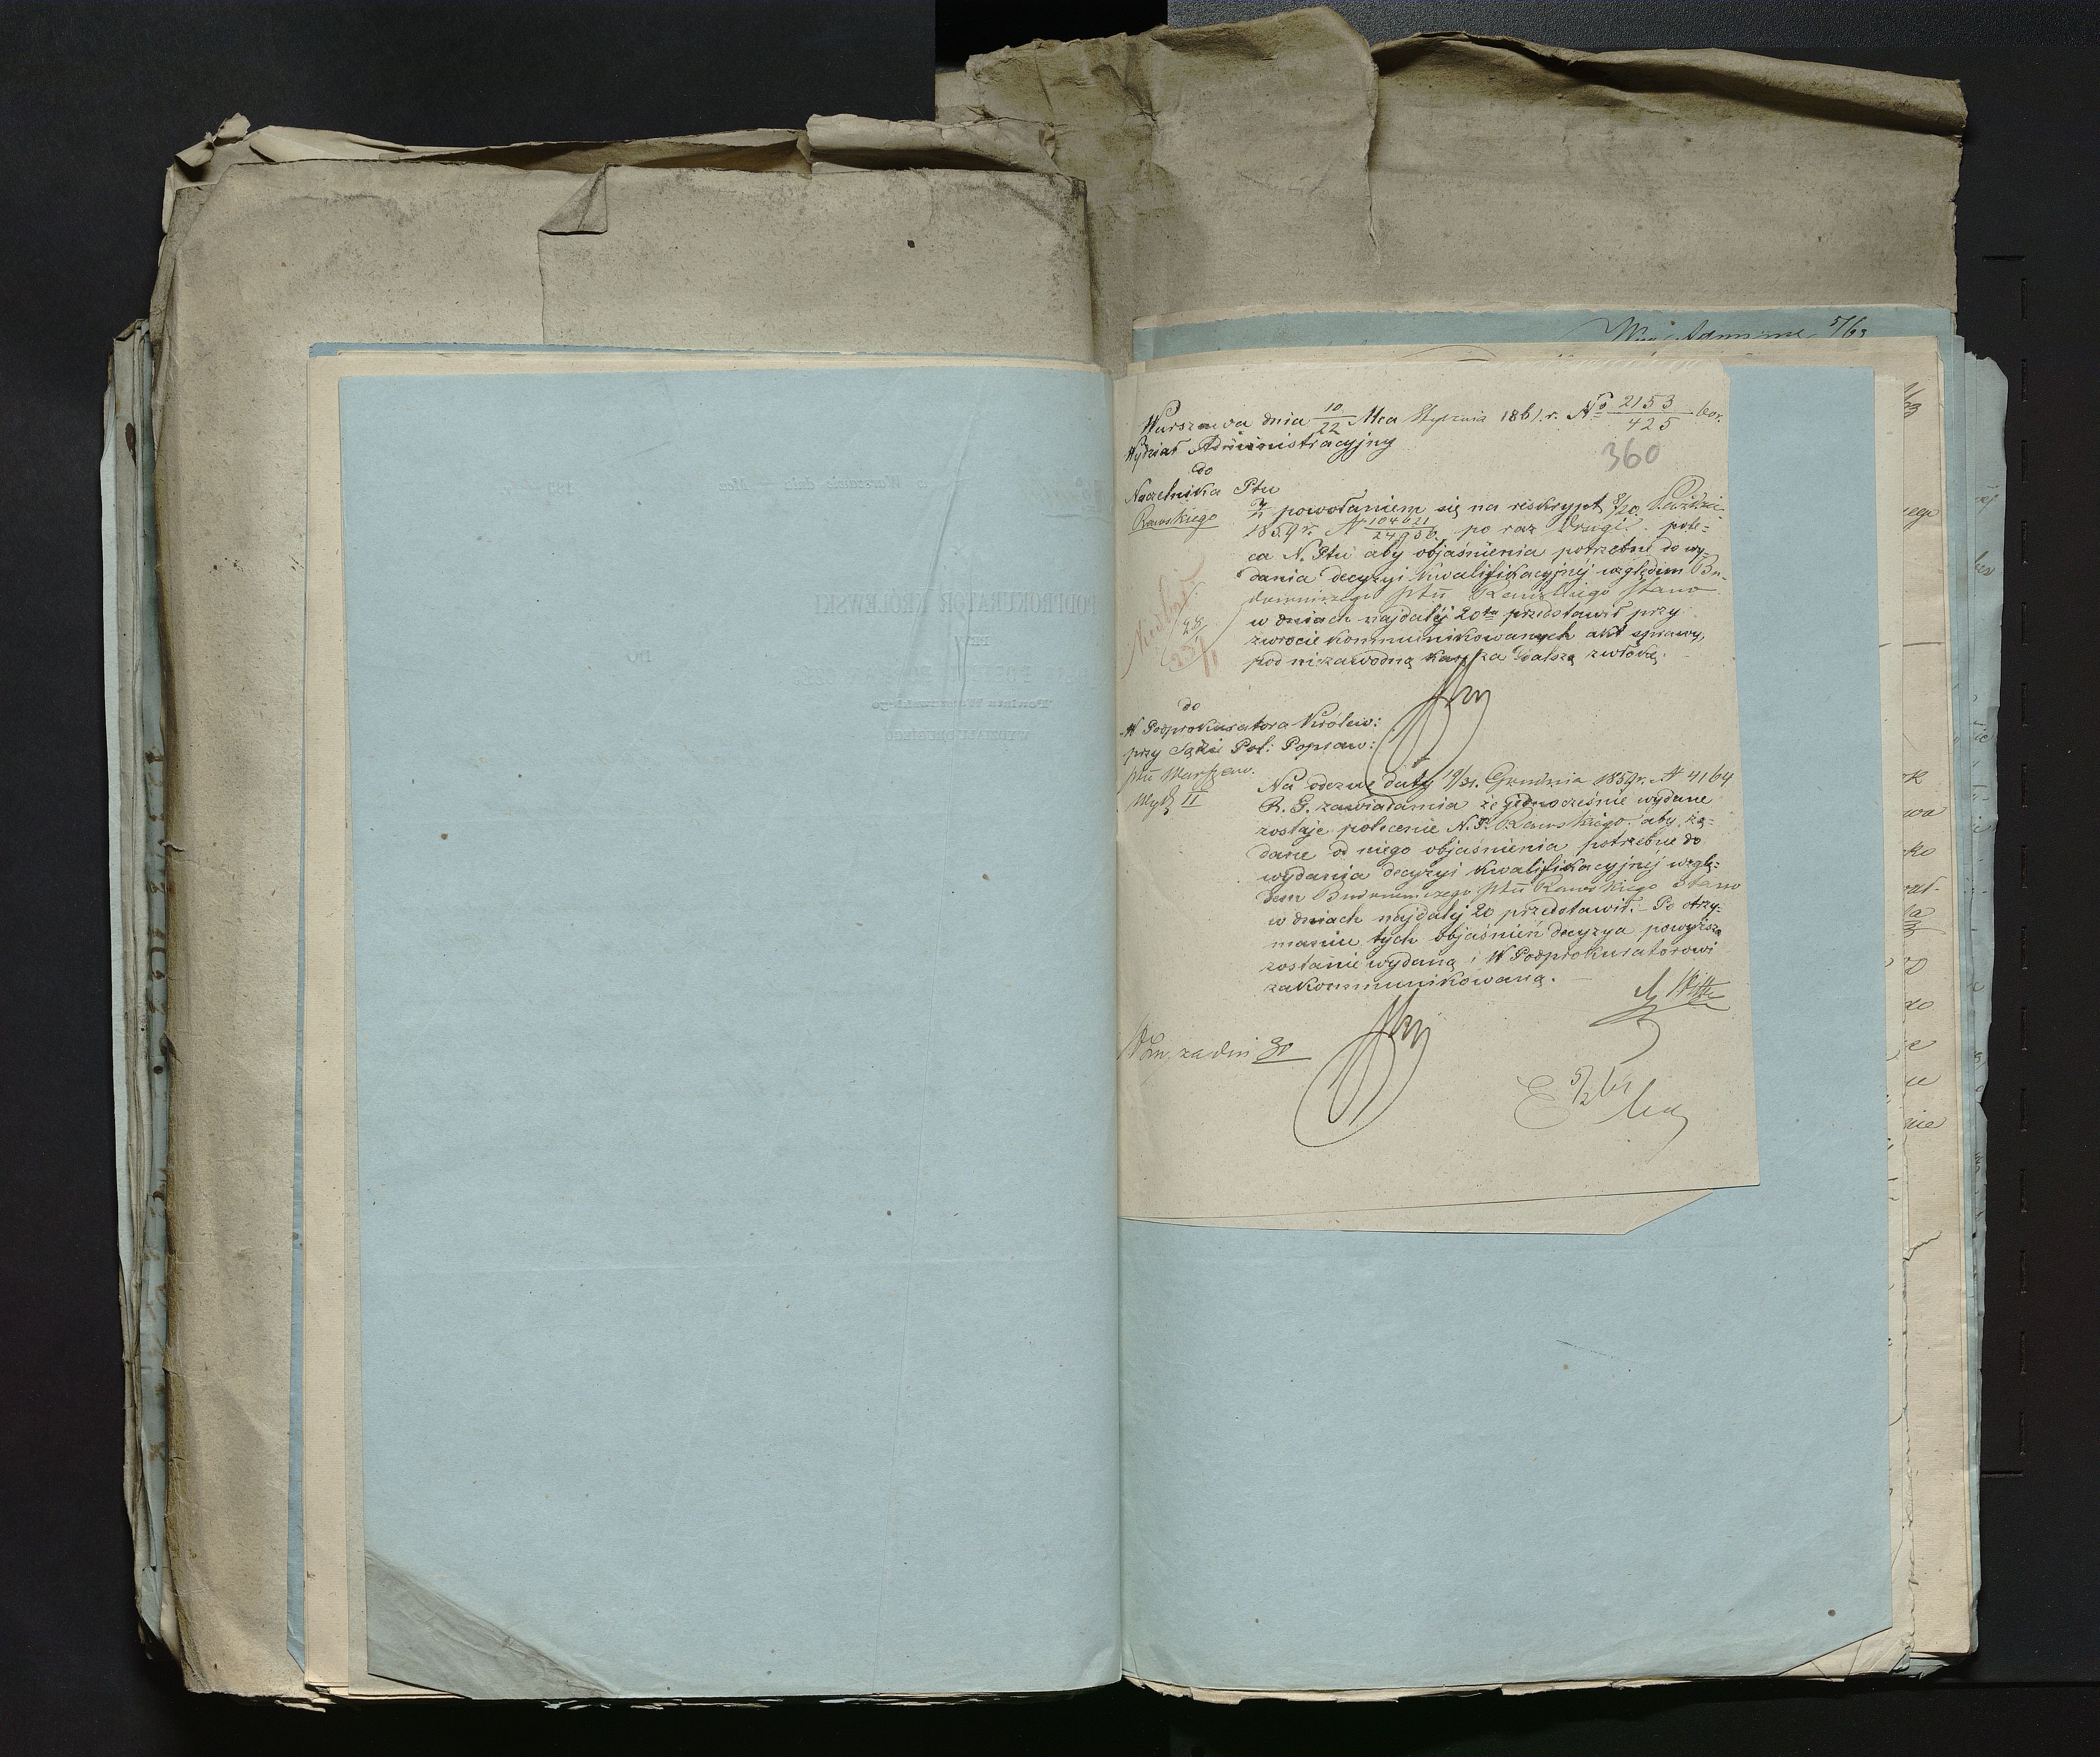 Warszawa dnia 10/22 Mca Stycznia 1861. r. No 2153/425
Wydział Administracyjny
360
do
Naczelnika Ptu
Rawskiego
Z powołaniem się na reskrypt 8/20 Paździer:
1859 r. N 104621/24956 po raz drugi pole=
ca N. Ptu aby objaśnienia potrzebne do wy=
dania decyzyi kwalifikacyjnéj względem Bu=
downiczego Ptu Rawskiego Stano
w dniach najdaléj 20tu przedstawił przy
zwrocie kommunikowanych akt sprawy,
pod niezawodną karą za dalszą zwłokę.
do
W Podprokuratora Królew:
przy Sądzie Pol: Popraw:
Ptu Warszaw.
Wydz II
Na odezwę daty 19/31 Grudnia 1859 r. N 4164
R. G. zawiadamia że jednocześnie wydane
zostaje polecenie N. P. Rawskiego aby żą=
dane od niego objaśnienia potrzebne do
wydania decyzyi kwalifikacyjnéj wzglę=
dem Budowniczego Ptu Rawskiego Stano
w dniach najdaléj 20 przedstawił. – Po otrzy=
maniu tych objaśnień decyzya powyższa
zostanie wydaną i W Podprokuratorowi
zakommunikowaną. –
za dni 30
PODPROKURATOR KRÓLEWSKI
PRZY
DO